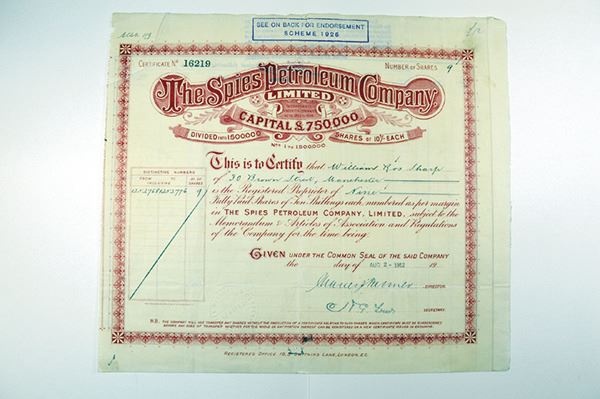 SEE ON BACK FOR ENDORSEMENT
SCHEME 1926
CERTIFICATE No 16219
NUMBER OF SHARES 9
The Spies Petroleum Company,
LIMITED
CAPITAL £750,000.
DIVIDED INTO 1500000
SHARES OF 10/- EACH
Nos 1 to 1500000
This is to Certify that William Ross Sharp
of 30 Brown Street, Manchester
is the Registered Proprietor of Nine
Fully Paid Shares of Ten Shillings each, numbered as per margin
in THE SPIES PETROLEUM COMPANY, LIMITED, subject to the
Memorandum & Articles of Association and Regulations
of the Company for the time being.
DISTINCTIVE NUMBERS
FROM TO No OF
INCLUSIVE SHARES
9
GIVEN UNDER THE COMMON SEAL OF THE SAID COMPANY
the day of AUG 2 - 1912 19
DIRECTOR
SECRETARY
N.B. THE COMPANY WILL NOT TRANSFER ANY SHARES WITHOUT THE PRODUCTION OF A CERTIFICATE RELATING TO SUCH SHARES, WHICH CERTIFICATE MUST BE SURRENDERED
BEFORE ANY DEED OF TRANSFER WHETHER FOR THE WHOLE OR ANY PORTION THEREOF CAN BE REGISTERED OR A NEW CERTIFICATE ISSUED IN EXCHANGE.
REGISTERED OFFICE LANE, LONDON, E.C.